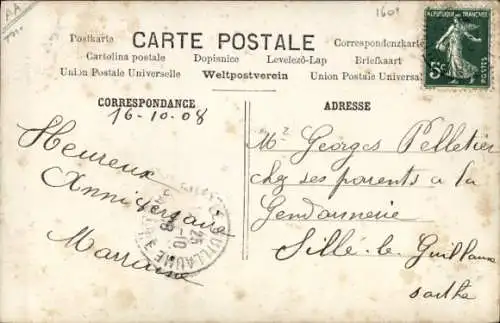 AA
1601
CARTE POSTALE
Postkarte
Correspondenzkarte
Cartolina postale Dopisnice Levelező-Lap Briefkaart
Union Postale Universelle Weltpostverein Union Postale Universal
REPUBLIQUE FRANÇAISE
5c
POSTES
CORRESPONDANCE
16-10-08
Heureux
Anniversaire
Marraine
25
-10
08
GUILLAUME
ADRESSE
Mr Georges Pelletier
chez ses parents a la
Gendarmerie
Sillé-le-Guillaume
sarthe